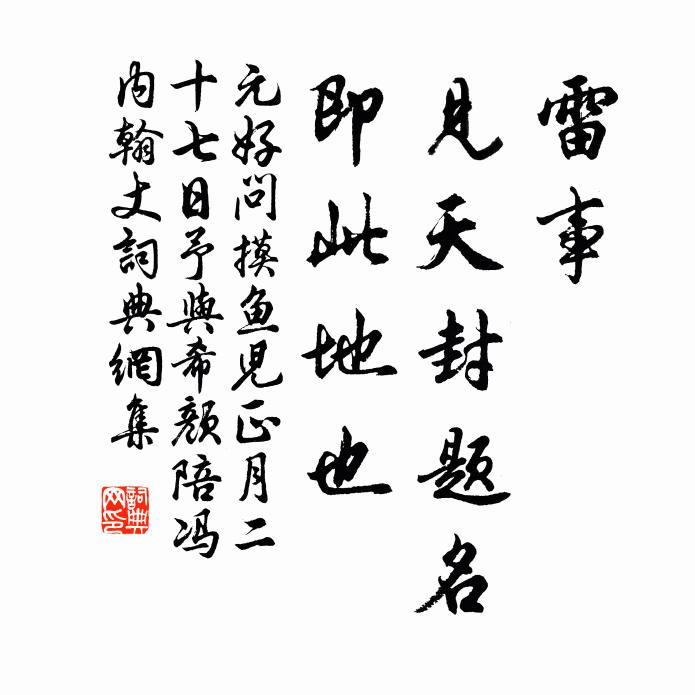 雷事
见天封题名
即此地也
元好问摸鱼児正月二
十七日予與希颜陪冯
内翰丈詞典網集
詞典
网印